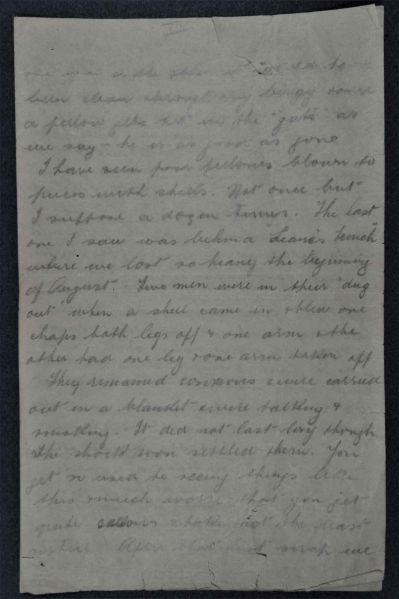 one was in the
been clean through any bingy
a fellow gets hit in the "guts" as
we say – he is as good as gone
I have seen poor fellows blown to
pieces with shells. Not once but
I suppose a dozen times. The last
one I saw was behind Leane's Trench
where we lost so heavy the beginning
of August. Two men were in their "dug
out" when a shell came in & blew one
chaps both legs off & one arm & the
other had one leg & one arm taken off
They remained concious & were carried
out in a blanket & were talking &
smoking. It did not last long though
the shock soon settled them. You
get so used to seeing things like
this & much worse that you get
quite callous & take not the least
notice. After that last scrap we